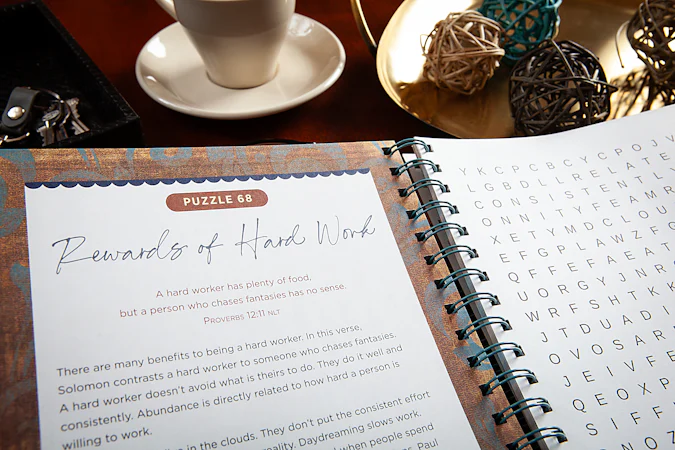 PUZZLE 68
Rewards of Hard Work
A hard worker has plenty of food,
but a person who chases fantasies has no sense.
PROVERBS 12:11 NLT
There are many benefits to being a hard worker. In this verse,
Solomon contrasts a hard worker to someone who chases fantasies.
A hard worker doesn't avoid what is theirs to do. They do it well and
consistently. Abundance is directly related to how hard a person is
willing to work.
in the clouds. They don't put the consistent effort
Daydreaming slows work.
when people spend
Paul
YKCPCBCYCPOJV
LGBDLLRELATE
CONSISTENTL
ONNITYFEAMR
XETYMDCLOU
EFGPLAWZFG
QFFEFAEAT
UORGYJNR
WRFSHTKK
JTDUADI
OVOSAR
JEIVFE
QEOXP
SIFF
NOZ